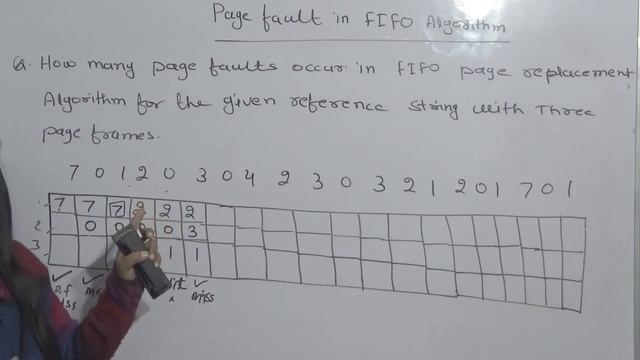 Page fault in FIFO Algorithm
Q. How many page faults occur in FIFO page replacement
Algorithm for the given reference string with Three
page frames.
7 0 1 2 0 3 0 4 2 3 0 3 2 1 2 0 1 7 0 1
1 7 7 7 2 2 2
2 0 0 0 3
3 1 1
✓ ✓ ✓
P.f miss
miss